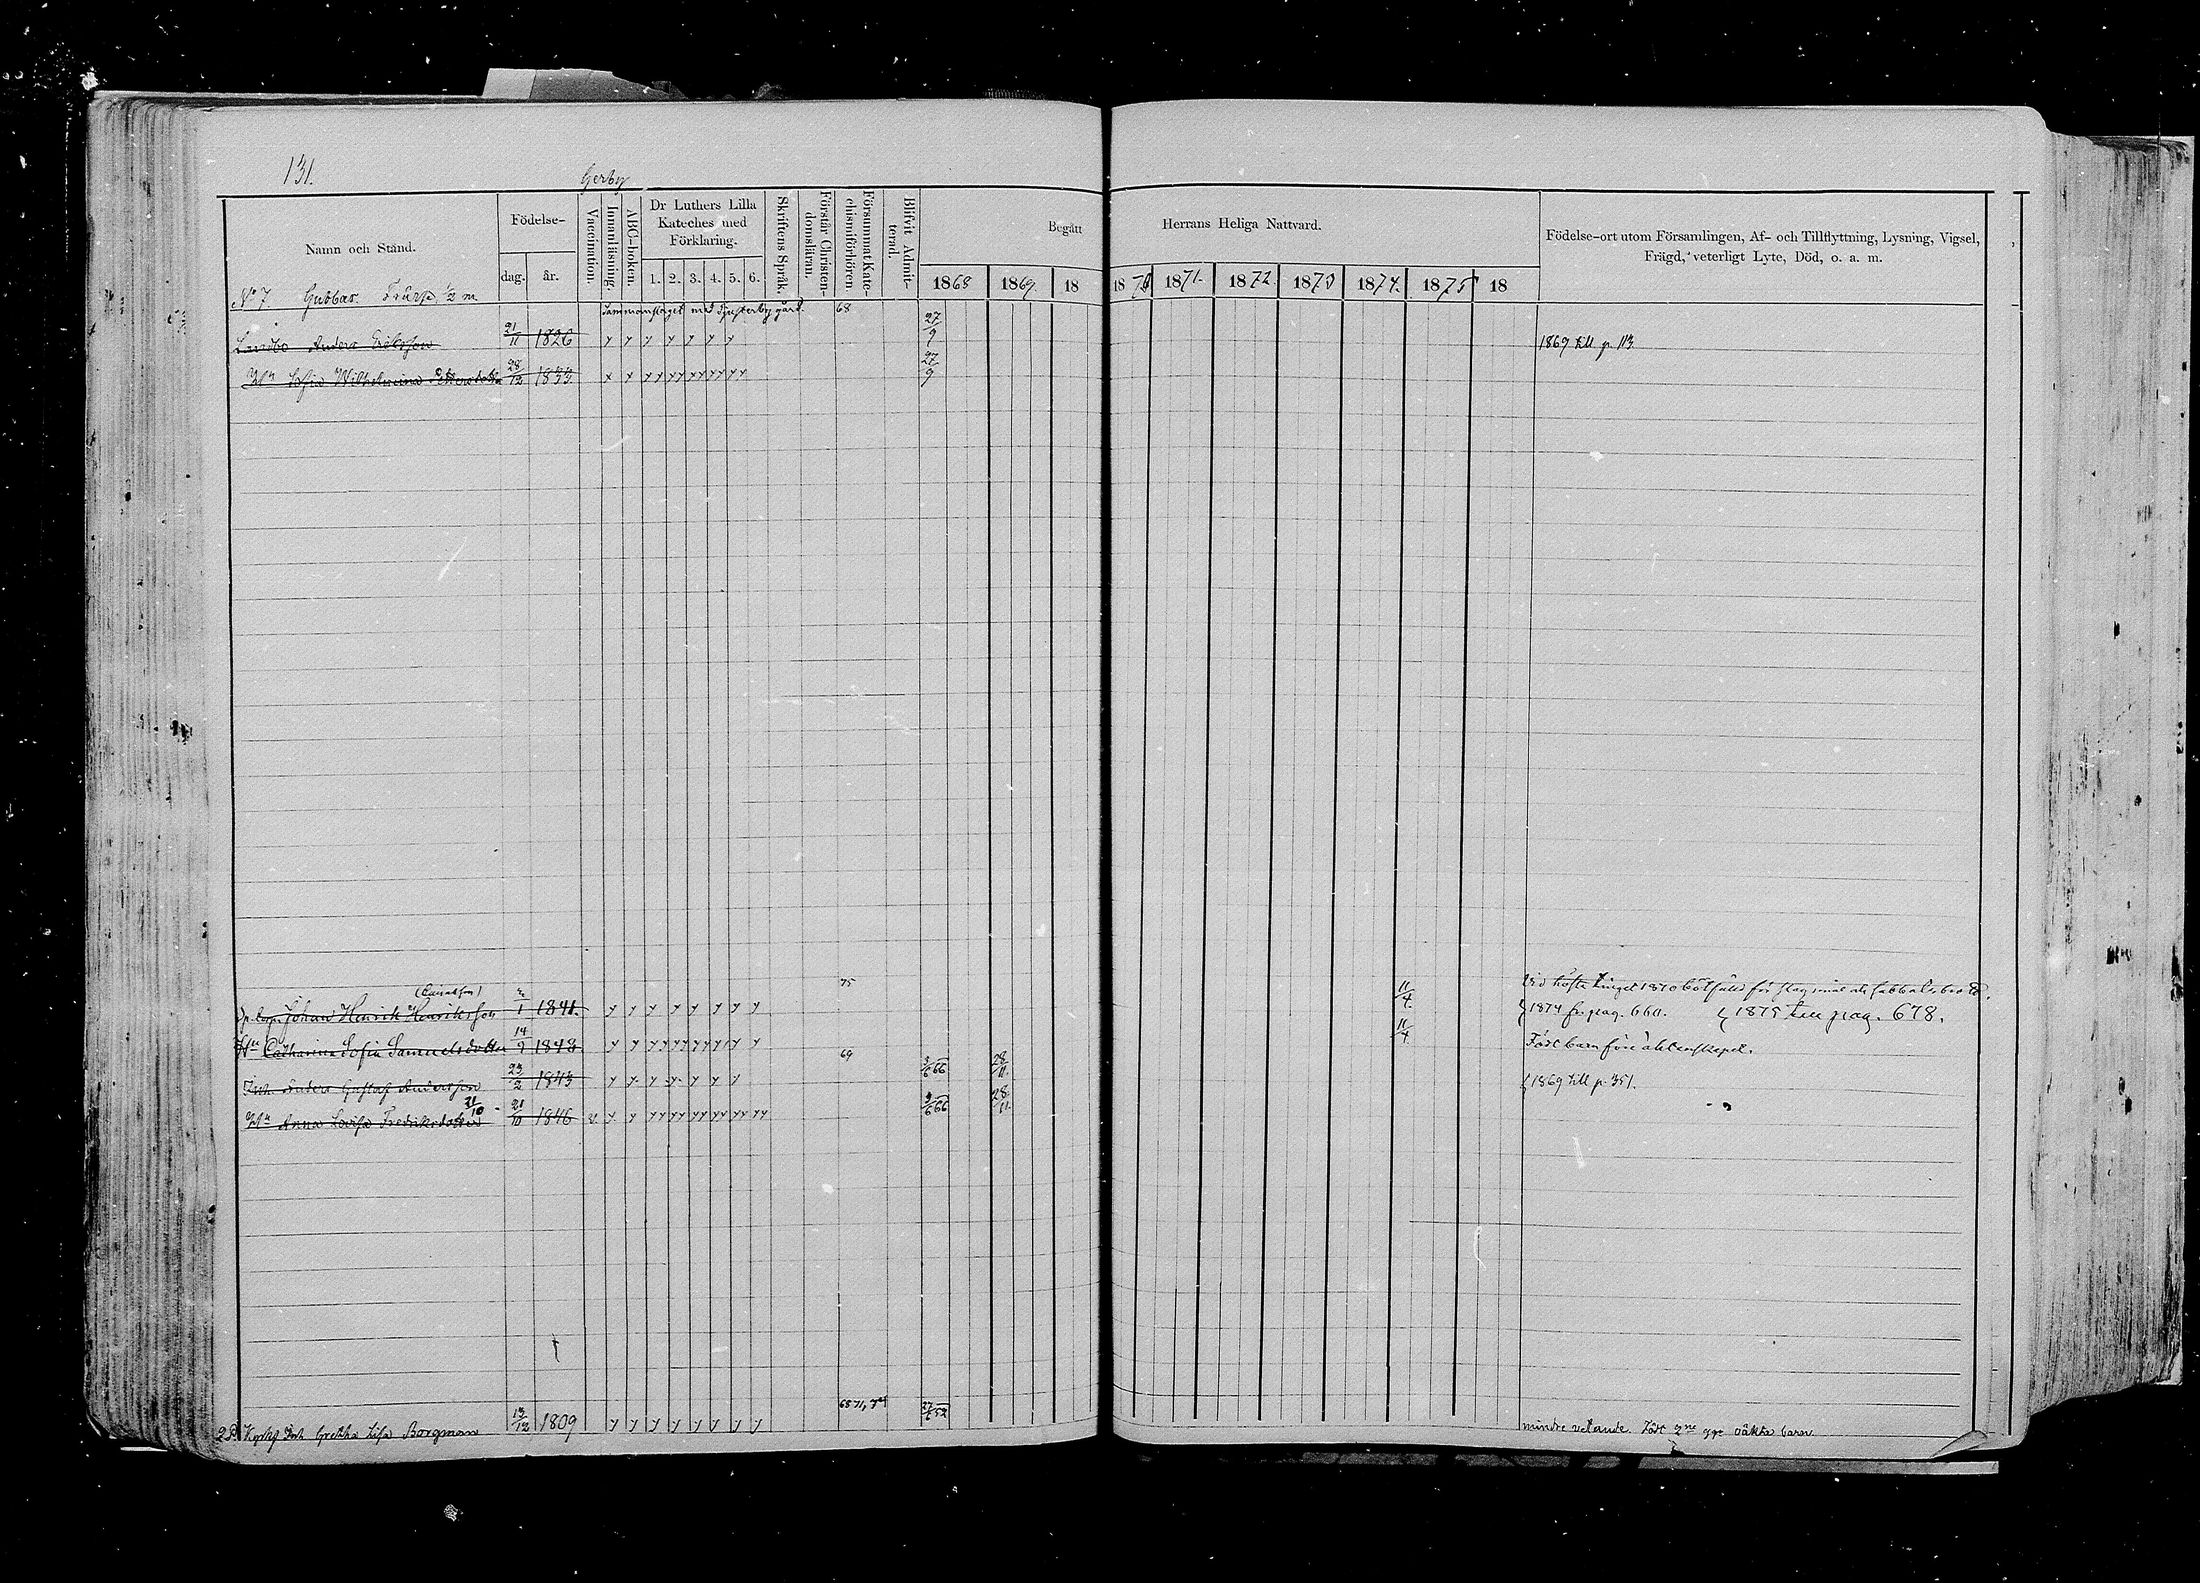 131.
Gerby
Namn och Stånd.
Födelse-
dag. år.
Vaccination.
Innanläsning.
ABC-boken.
Dr Luthers Lilla Kateches med Förklaring.
1. 2. 3. 4. 5. 6.
Skriftens Språk.
Förstår Christendomsläran.
Försummat Katechismiförhören
Blifvit Admitterad.
Begått Herrans Heliga Nattvard.
1868 1869 18 1870 1871. 1872 1873 1874. 1875 18
Födelse-ort utom Församlingen, Af- och Tillflyttning, Lysning, Vigsel, Frägd, veterligt Lyte, Död, o. a. m.
No 7. Gubbas ½ m
Sammanslaget med gård. 68
Anders Eriksson 21/11 1826 y y y y y y y 27/9 1869 till p. 113
Hu Sofia Wilhelmina Pettersdotter 28/12 1833 x y yy yy yy yy yy 27/9
75
Johan Henrik Henriksson 1/1 1841. y y y y y y y y 11/4. Vid höste tinget 1870 bötfälld för slagsmål
1874 fr. pag. 660. 1875 till pag. 678.
Hu Catharina Sofia Samuelsdotter 14/9 1848. 11/4 Födt barn före äktenskapet.
69
Anders Gustaf Andersson 23/2 1843 y y y y y y y 3/6 66 28/11. 1869 till p. 351.
21/10
Hu Anna Lovisa Fredriksdotter 21/10 1846 v. y y yy yy yy yy yy yy 3/6 66 28/11. - " -
Gretha Lisa Borgman 13/12 1809 y y y y y y y y 68 71, 74 27/6 52 mindre vetande. Födt 2ne ggr oäkta barn